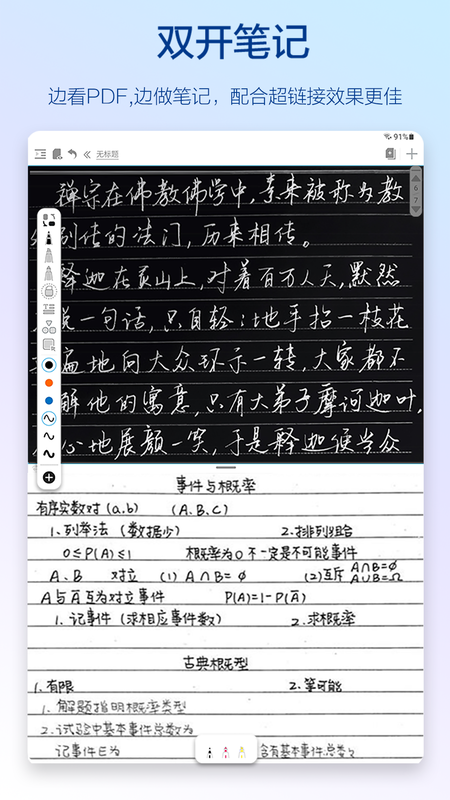 双开笔记
边看PDF,边做笔记，配合超链接效果更佳
91%
无标题
6
7
禅宗在佛教佛学中,素来被称为教
别传的法门,历来相传。
释迦在灵山上,对着百万人天,默然
说一句话,只自轻轻地手拈一枝花
遍地向大众环示一转,大家都不
解他的寓意,只有大弟子摩诃迦叶,
心地展颜一笑,于是释迦便当众
事件与概率
有序实数对 (a.b) (A.B.C)
1.列举法（数据少） 2.排列组合
0≤P(A)≤1 概率为0不一定是不可能事件
A、B 对立 (1) A∩B=∅ (2)互斥 A∩B=∅
A∪B=Ω
A与A̅互为对立事件 P(A)=1-P(A̅)
1.记事件（求相应事件数） 2.求概率
古典概型
1.有限 2.等可能
1.解题指明概率类型
2.试验中基本事件总数为
记事件E为 含有基本事件总数